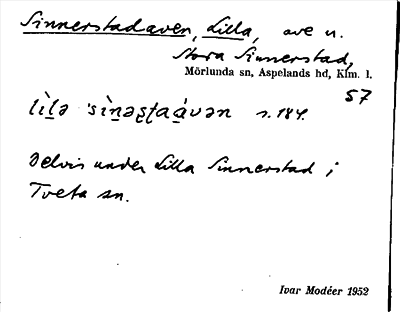 Sinnerstadaven, Lilla, ave u.
Stora Sinnerstad,
Mörlunda sn, Aspelands hd, Klm. l.
57
s. 184.
Delvis under Lilla Sinnerstad i
Tveta sn.
Ivar Modéer 1952